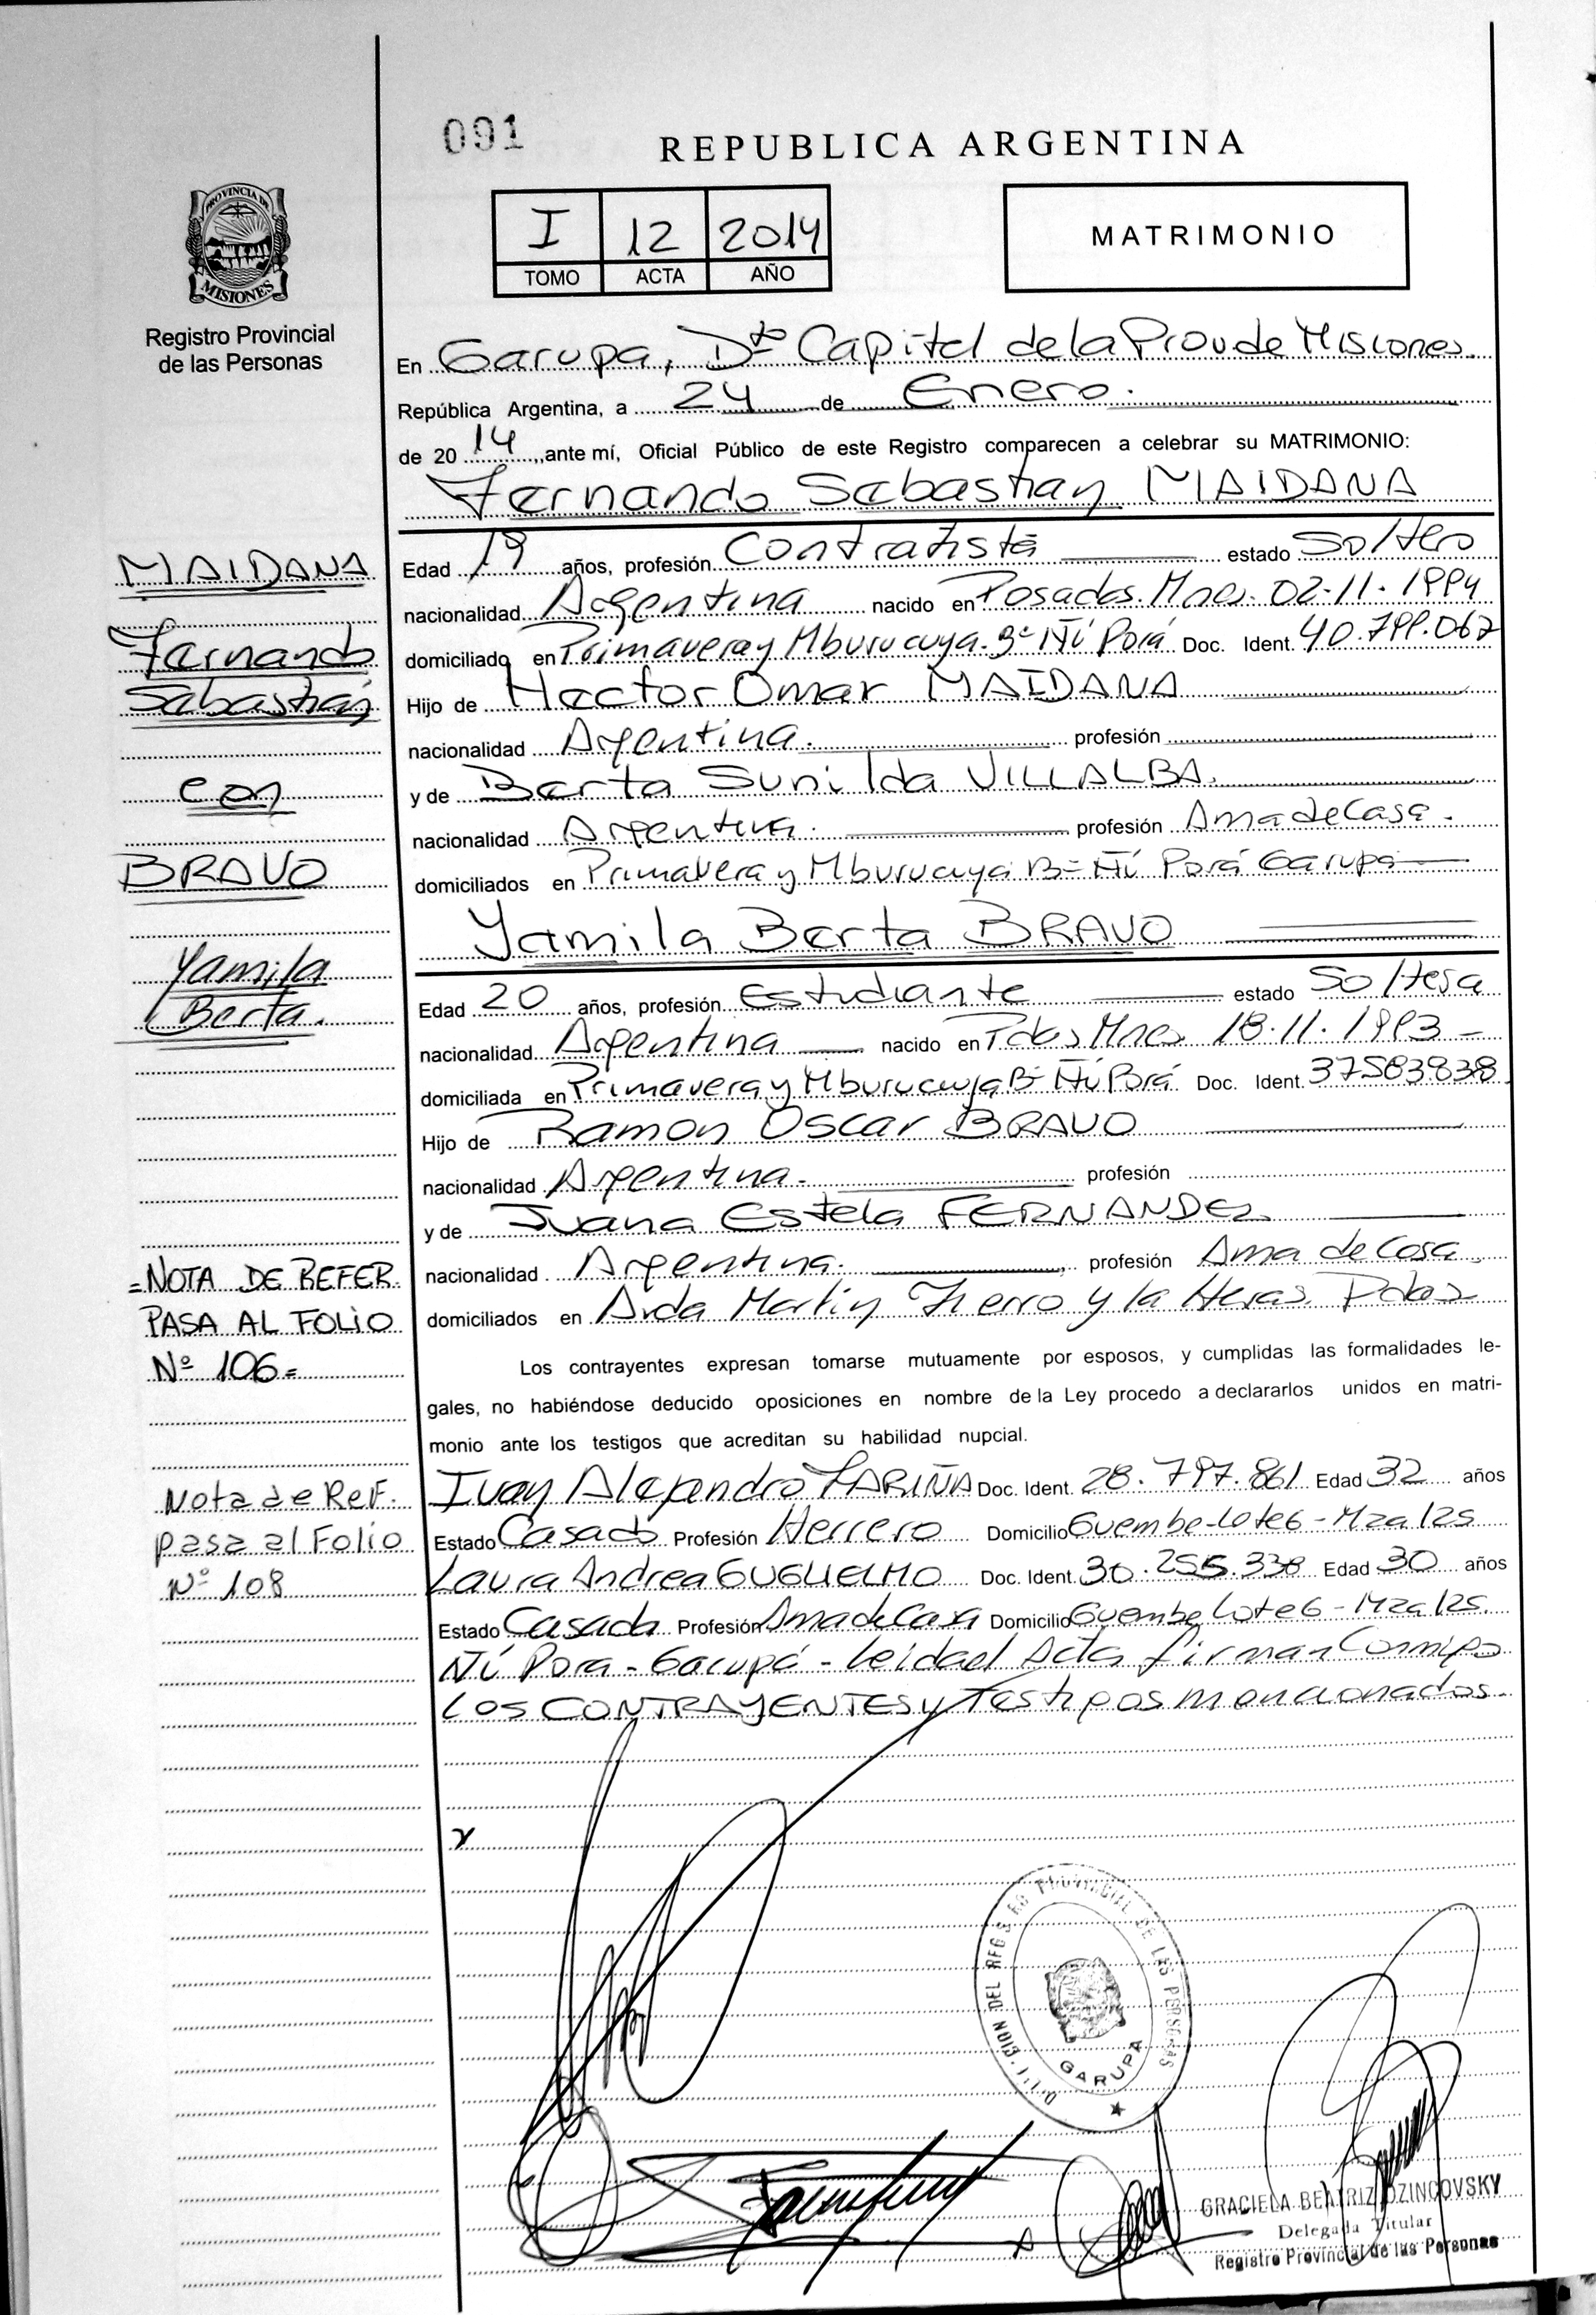 091
REPUBLICA ARGENTINA
PROVINCIA DE
MISIONES
Registro Provincial
de las Personas
I 12 2014
TOMO ACTA AÑO
MATRIMONIO
En Garupa, Dto Capital de la Prov de Misiones.
República Argentina, a 24 de Enero.
de 20 14, ante mí, Oficial Público de este Registro comparecen a celebrar su MATRIMONIO:
Fernando Sebastian MAIDANA
Edad 19 años, profesión Contratista estado Soltero
nacionalidad Argentina nacido en Posadas. Mnes. 02-11-1994
domiciliado en Primavera y Mburucuya. Bº Ñú Porá Doc. Ident. 40.799.067
Hijo de Hector Omar MAIDANA
nacionalidad Argentina. profesión
y de Berta Sunilda VILLALBA.
nacionalidad Argentina. profesión Ama de Casa.
domiciliados en Primavera y Mburucuya Bº Ñú Porá Garupa
Yamila Berta BRAVO
Edad 20 años, profesión Estudiante estado Soltera
nacionalidad Argentina nacido en Pdas Mnes 18.11.1993
domiciliada en Primavera y Mburucuya Bº Ñú Porá Doc. Ident. 37583838
Hijo de Ramon Oscar BRAVO
nacionalidad Argentina. profesión
y de Juana Estela FERNANDEZ
nacionalidad Argentina. profesión Ama de Casa.
domiciliados en Avda Martin Fierro y las Heras. Pdas
Los contrayentes expresan tomarse mutuamente por esposos, y cumplidas las formalidades le-
gales, no habiéndose deducido oposiciones en nombre de la Ley procedo a declararlos unidos en matri-
monio ante los testigos que acreditan su habilidad nupcial.
Ivan Alejandro FARIÑA Doc. Ident. 28.797.861 Edad 32 años
Estado Casado Profesión Herrero Domicilio Guembe-Lote 6 - Mza 125
Laura Andrea GUGLIELMO Doc. Ident. 30.255.338 Edad 30 años
Estado Casada Profesión Ama de Casa Domicilio Guembe Lote 6 - Mza 125.
Ñú Pora - Garupá - Leida el Acta firman Conmigo
LOS CONTRAYENTES y Testigos mencionados.
MAIDANA
Fernando
Sebastián
con
BRAVO
Yamila
Berta.
=NOTA DE REFER.
PASA AL FOLIO
Nº 106=
Nota de Ref.
pasa al Folio
Nº 108
DEL REGISTRO PROVINCIAL DE LAS PERSONAS
GARUPA
GRACIELA BEATRIZ DZINCOVSKY
Delegada Titular
Registro Provincial de las Personas